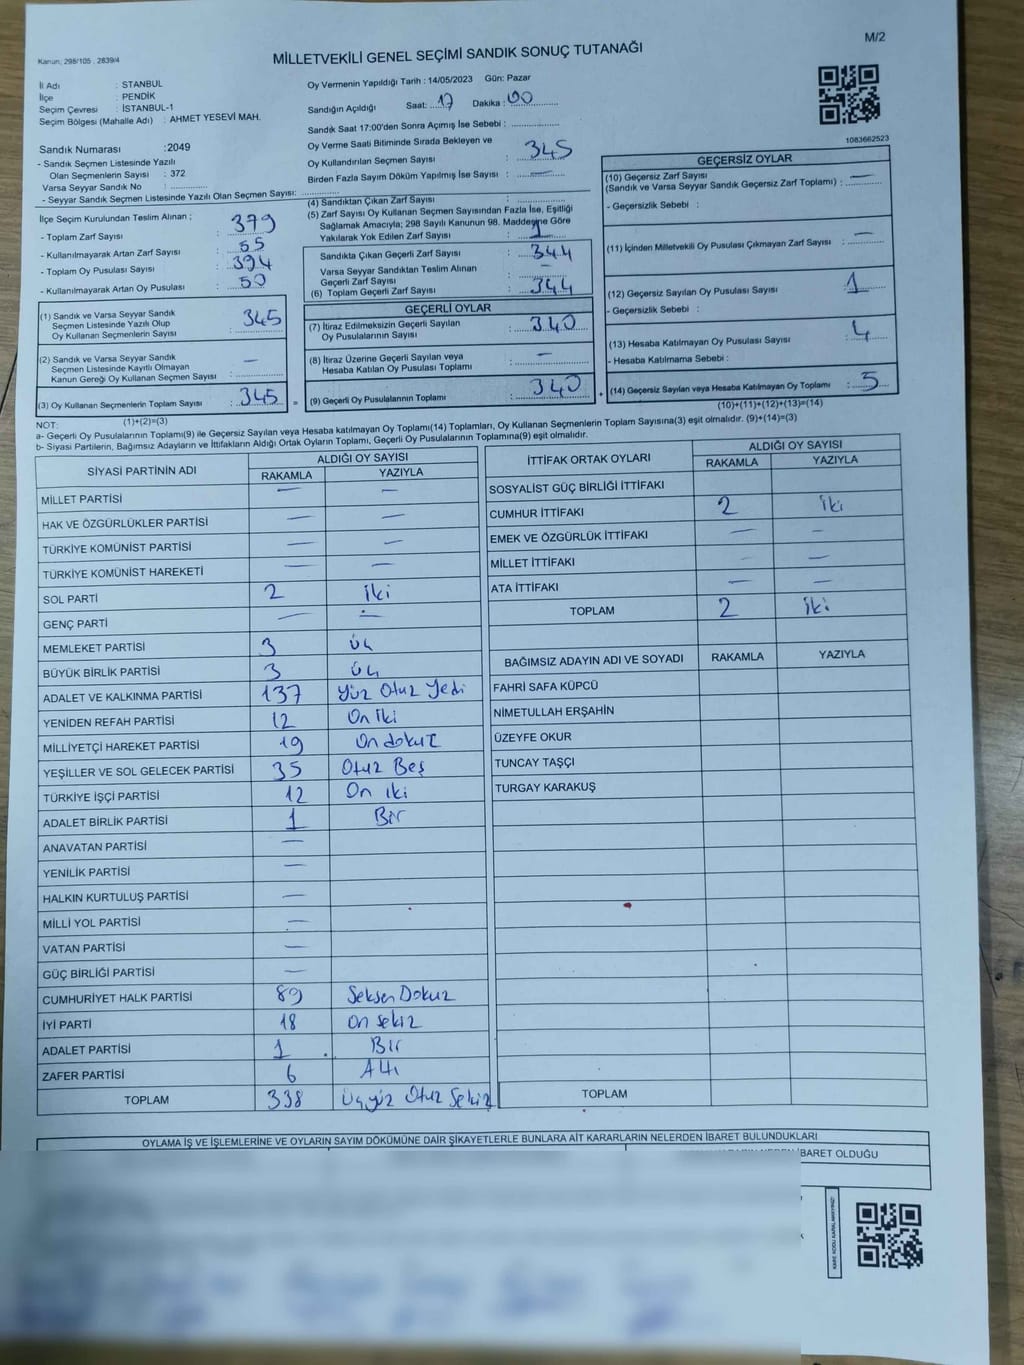 M/2
Kanun: 298/105 , 2839/4
MİLLETVEKİLİ GENEL SEÇİMİ SANDIK SONUÇ TUTANAĞI
İl Adı : STANBUL
İlçe : PENDİK
Seçim Çevresi : İSTANBUL-1
Seçim Bölgesi (Mahalle Adı) : AHMET YESEVİ MAH.
Oy Vermenin Yapıldığı Tarih : 14/05/2023 Gün: Pazar
Sandığın Açıldığı Saat: 17 Dakika : 00
Sandık Saat 17:00'den Sonra Açımış İse Sebebi :
Oy Verme Saati Bitiminde Sırada Bekleyen ve
Oy Kullandırılan Seçmen Sayısı : 345
Birden Fazla Sayım Döküm Yapılmış İse Sayısı : —
1083662523
Sandık Numarası :2049
- Sandık Seçmen Listesinde Yazılı
Olan Seçmenlerin Sayısı : 372
Varsa Seyyar Sandık No :
- Seyyar Sandık Seçmen Listesinde Yazılı Olan Seçmen Sayısı:
İlçe Seçim Kurulundan Teslim Alınan ;
- Toplam Zarf Sayısı : 379
- Kullanılmayarak Artan Zarf Sayısı : 55
- Toplam Oy Pusulası Sayısı : 394
- Kullanılmayarak Artan Oy Pusulası : 50
(1) Sandık ve Varsa Seyyar Sandık
Seçmen Listesinde Yazılı Olup
Oy Kullanan Seçmenlerin Sayısı : 345
(2) Sandık ve Varsa Seyyar Sandık
Seçmen Listesinde Kayıtlı Olmayan
Kanun Gereği Oy Kullanan Seçmen Sayısı : —
(3) Oy Kullanan Seçmenlerin Toplam Sayısı : 345
(1)+(2)=(3)
(4) Sandıktan Çıkan Zarf Sayısı :
(5) Zarf Sayısı Oy Kullanan Seçmen Sayısından Fazla İse, Eşitliği
Sağlamak Amacıyla; 298 Sayılı Kanunun 98. Maddesine Göre
Yakılarak Yok Edilen Zarf Sayısı : 1
Sandıkta Çıkan Geçerli Zarf Sayısı : 344
Varsa Seyyar Sandıktan Teslim Alınan
Geçerli Zarf Sayısı : —
(6) Toplam Geçerli Zarf Sayısı : 344
GEÇERLİ OYLAR
(7) İtiraz Edilmeksizin Geçerli Sayılan
Oy Pusulalarının Sayısı : 340
(8) İtiraz Üzerine Geçerli Sayılan veya
Hesaba Katılan Oy Pusulası Toplamı : —
(9) Geçerli Oy Pusulalarının Toplamı : 340
GEÇERSİZ OYLAR
(10) Geçersiz Zarf Sayısı
(Sandık ve Varsa Seyyar Sandık Geçersiz Zarf Toplamı) : —
- Geçersizlik Sebebi :
(11) İçinden Milletvekili Oy Pusulası Çıkmayan Zarf Sayısı : —
(12) Geçersiz Sayılan Oy Pusulası Sayısı : 1
- Geçersizlik Sebebi :
(13) Hesaba Katılmayan Oy Pusulası Sayısı : 4
- Hesaba Katılmama Sebebi :
(14) Geçersiz Sayılan veya Hesaba Katılmayan Oy Toplamı : 5
(10)+(11)+(12)+(13)=(14)
NOT:
a- Geçerli Oy Pusulalarının Toplamı(9) ile Geçersiz Sayılan veya Hesaba katılmayan Oy Toplamı(14) Toplamları, Oy Kullanan Seçmenlerin Toplam Sayısına(3) eşit olmalıdır. (9)+(14)=(3)
b- Siyasi Partilerin, Bağımsız Adayların ve İttifakların Aldığı Ortak Oyların Toplamı, Geçerli Oy Pusulalarının Toplamına(9) eşit olmalıdır.
SİYASİ PARTİNİN ADI ALDIĞI OY SAYISI
RAKAMLA YAZIYLA
MİLLET PARTİSİ — —
HAK VE ÖZGÜRLÜKLER PARTİSİ — —
TÜRKİYE KOMÜNİST PARTİSİ — —
TÜRKİYE KOMÜNİST HAREKETİ — —
SOL PARTİ 2 iki
GENÇ PARTİ — —
MEMLEKET PARTİSİ 3 üç
BÜYÜK BİRLİK PARTİSİ 3 üç
ADALET VE KALKINMA PARTİSİ 137 Yüz Otuz Yedi
YENİDEN REFAH PARTİSİ 12 On iki
MİLLİYETÇİ HAREKET PARTİSİ 19 On dokuz
YEŞİLLER VE SOL GELECEK PARTİSİ 35 Otuz Beş
TÜRKİYE İŞÇİ PARTİSİ 12 On iki
ADALET BİRLİK PARTİSİ 1 Bir
ANAVATAN PARTİSİ —
YENİLİK PARTİSİ —
HALKIN KURTULUŞ PARTİSİ —
MİLLİ YOL PARTİSİ —
VATAN PARTİSİ —
GÜÇ BİRLİĞİ PARTİSİ —
CUMHURİYET HALK PARTİSİ 89 Seksen Dokuz
İYİ PARTİ 18 On sekiz
ADALET PARTİSİ 1 Bir
ZAFER PARTİSİ 6 Altı
TOPLAM 338 Üçyüz Otuz Sekiz
İTTİFAK ORTAK OYLARI ALDIĞI OY SAYISI
RAKAMLA YAZIYLA
SOSYALİST GÜÇ BİRLİĞİ İTTİFAKI
CUMHUR İTTİFAKI 2 iki
EMEK VE ÖZGÜRLÜK İTTİFAKI — —
MİLLET İTTİFAKI — —
ATA İTTİFAKI — —
TOPLAM 2 iki
BAĞIMSIZ ADAYIN ADI VE SOYADI RAKAMLA YAZIYLA
FAHRİ SAFA KÜPCÜ
NİMETULLAH ERŞAHİN
ÜZEYFE OKUR
TUNCAY TAŞÇI
TURGAY KARAKUŞ
TOPLAM
OYLAMA İŞ VE İŞLEMLERİNE VE OYLARIN SAYIM DÖKÜMÜNE DAİR ŞİKAYETLERLE BUNLARA AİT KARARLARIN NELERDEN İBARET BULUNDUKLARI
İBARET OLDUĞU
KARE KODU KARALAMAYINIZ!